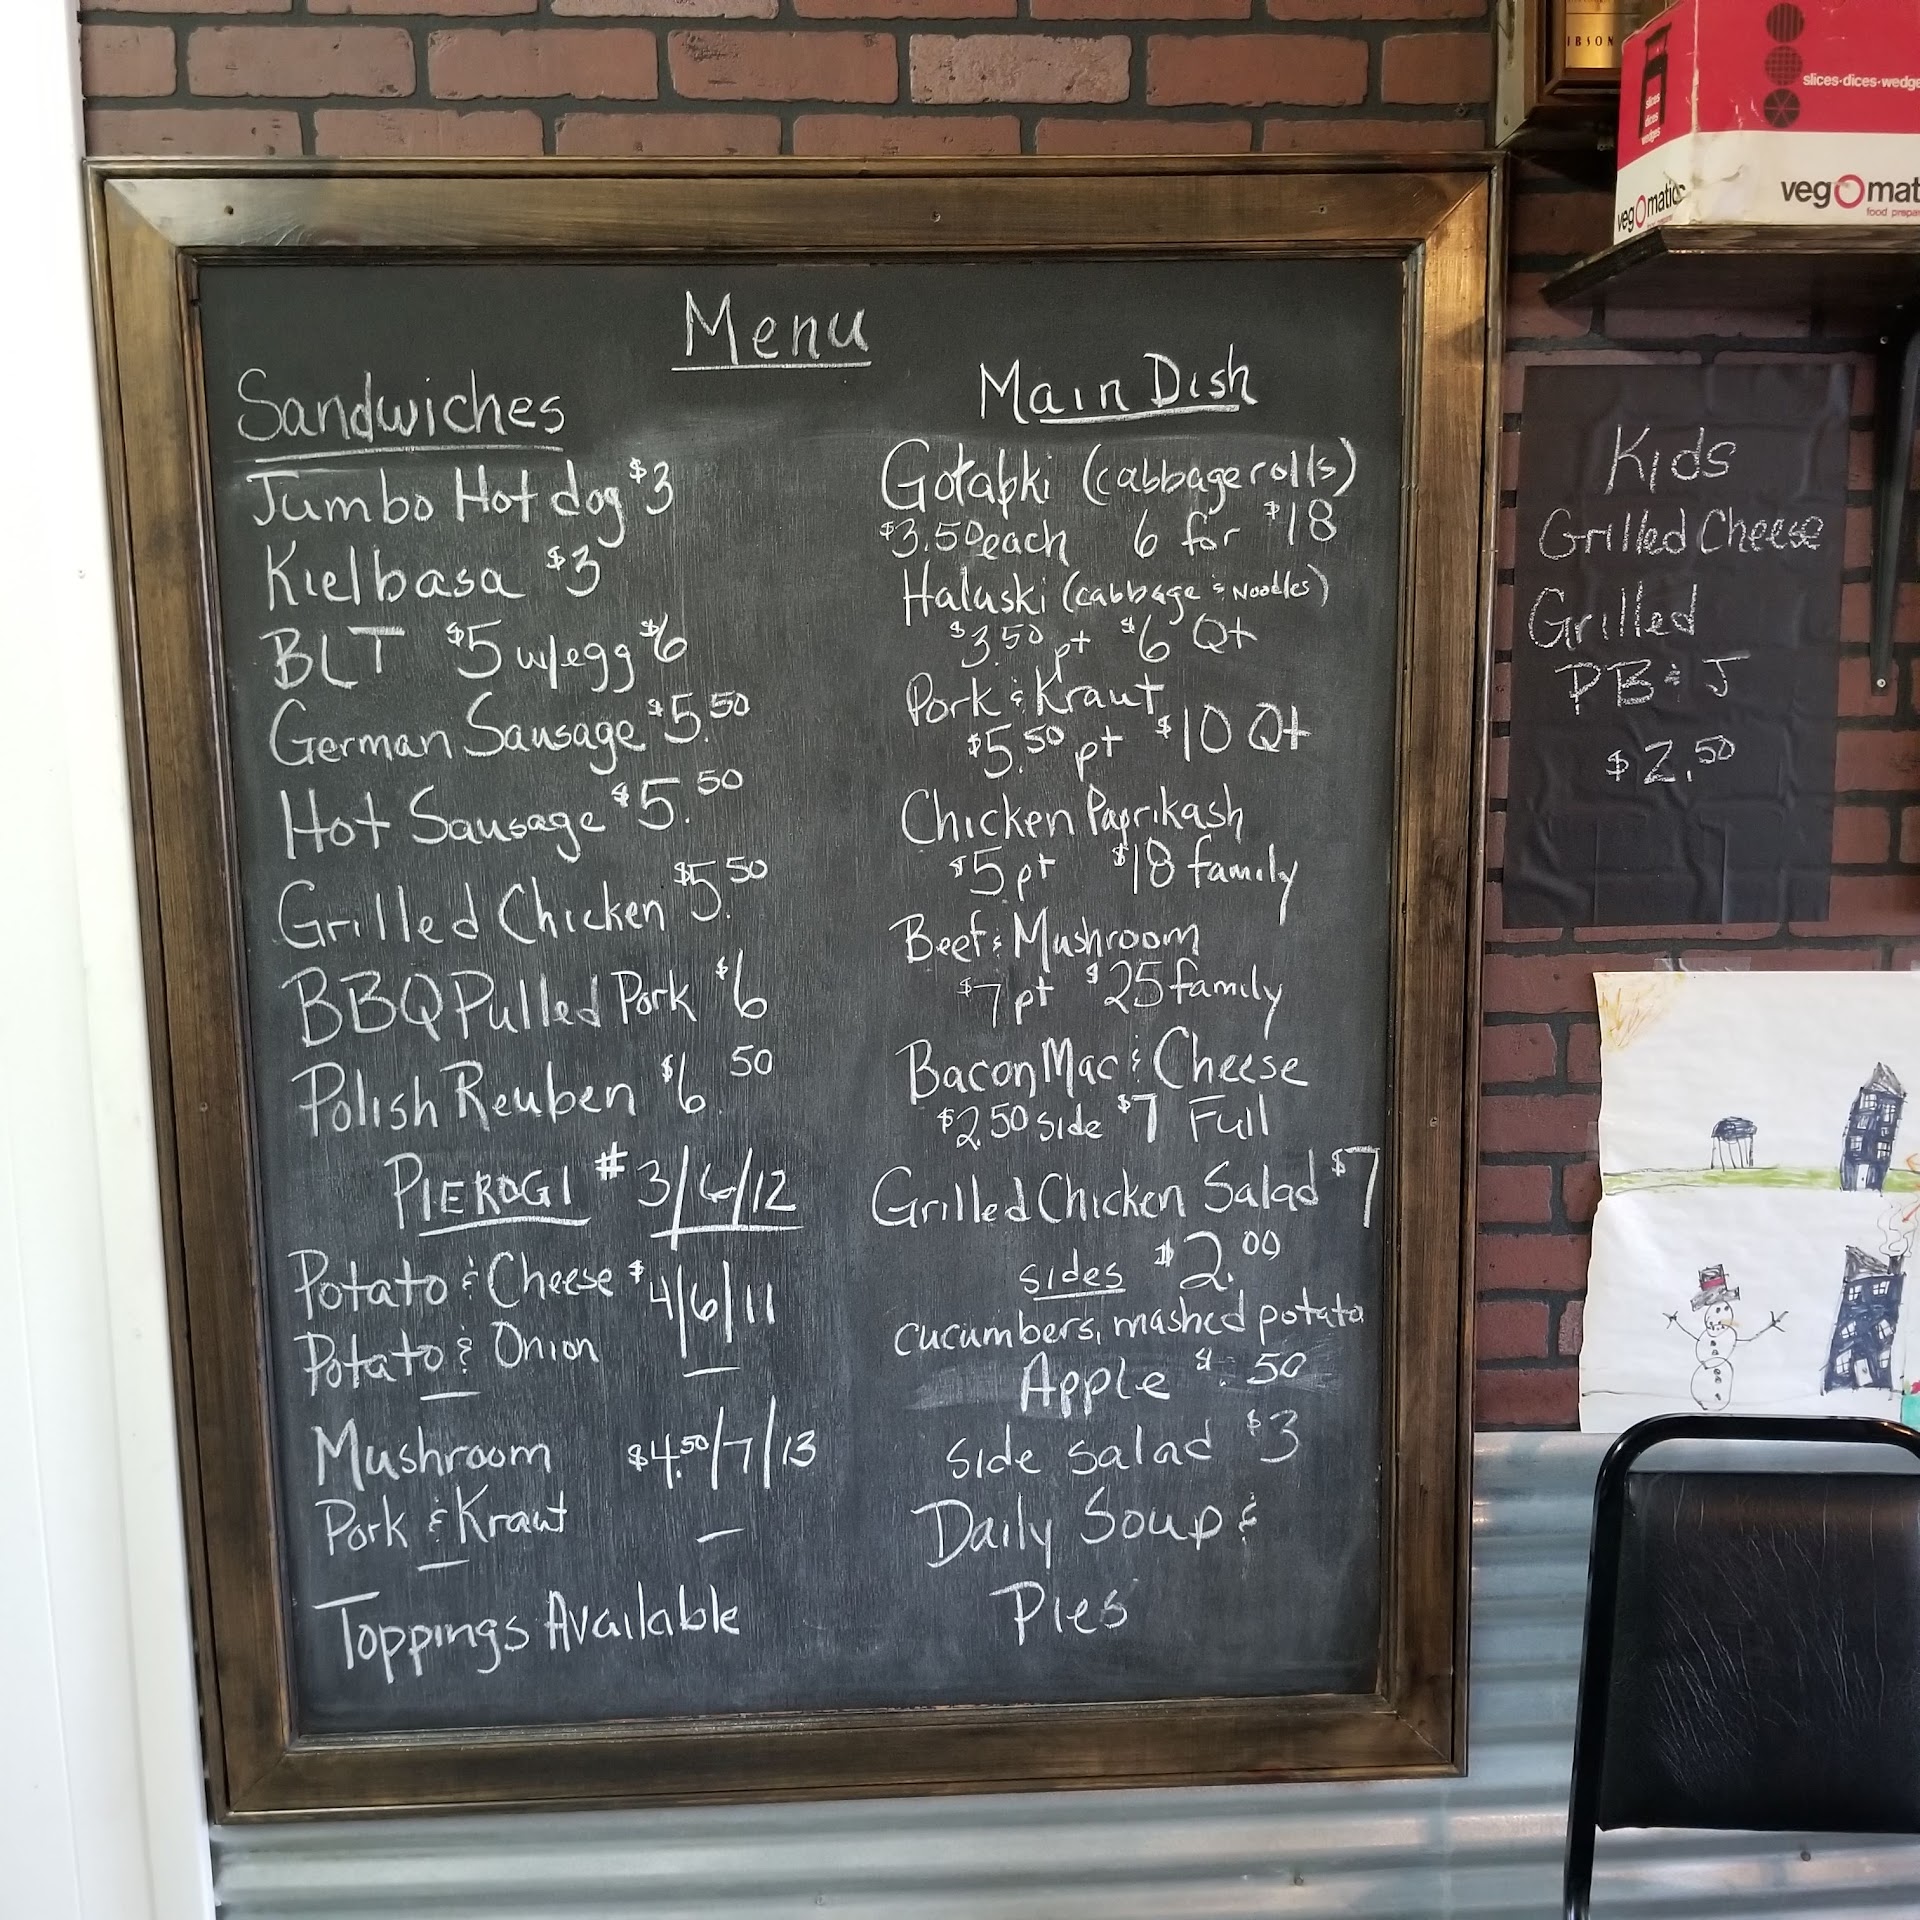 Menu
Sandwiches
Jumbo Hot dog $3
Kielbasa $3
BLT $5 w/egg $6
German Sausage $5.50
Hot Sausage $5.50
Grilled Chicken $5.50
BBQ Pulled Pork $6
Polish Reuben $6 50
PIEROGI # 3/6/12
Potato & Cheese $4/6/11
Potato & Onion
Mushroom $4.50/7/13
Pork & Kraut
Toppings Available
Main Dish
Gołabki (cabbage rolls)
$3.50 each 6 for $18
Haluski (cabbage & Noodles)
$3.50 pt $6 Qt
Pork & Kraut
$5.50 pt $10 Qt
Chicken Paprikash
$5 pt $18 family
Beef & Mushroom
$7 pt $25 family
Bacon Mac & Cheese
$2.50 side $7 Full
Grilled Chicken Salad $7
sides $2.00
cucumbers, mashed potato
Apple $.50
side salad $3
Daily Soup &
Pies
Kids
Grilled Cheese
Grilled
PB & J
$2.50
slices-dices-wedge
slices
dices
wedges
vegOmatic
vegOmat
food prepar
IBSON